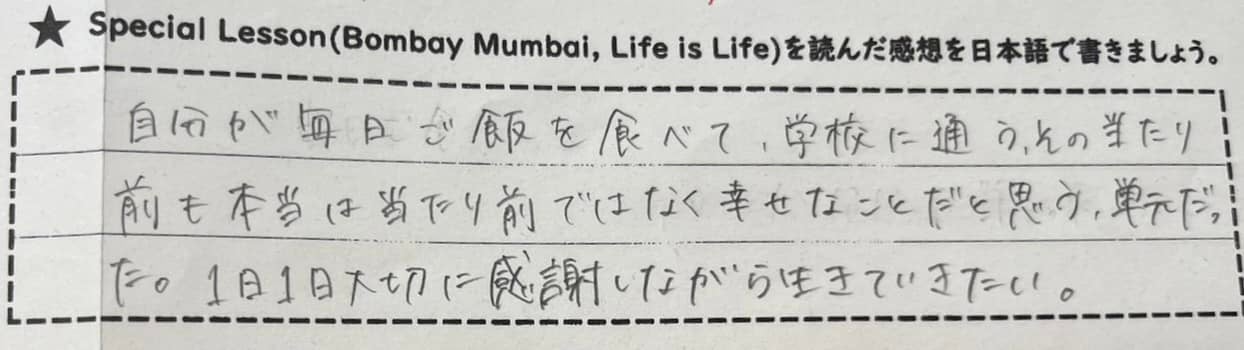 ★ Special Lesson(Bombay Mumbai, Life is Life)を読んだ感想を日本語で書きましょう。
自分が毎日ご飯を食べて、学校に通う、その当たり
前も本当は当たり前ではなく幸せなことだと思う、単元だっ
た。1日1日大切に感謝しながら生きていきたい。